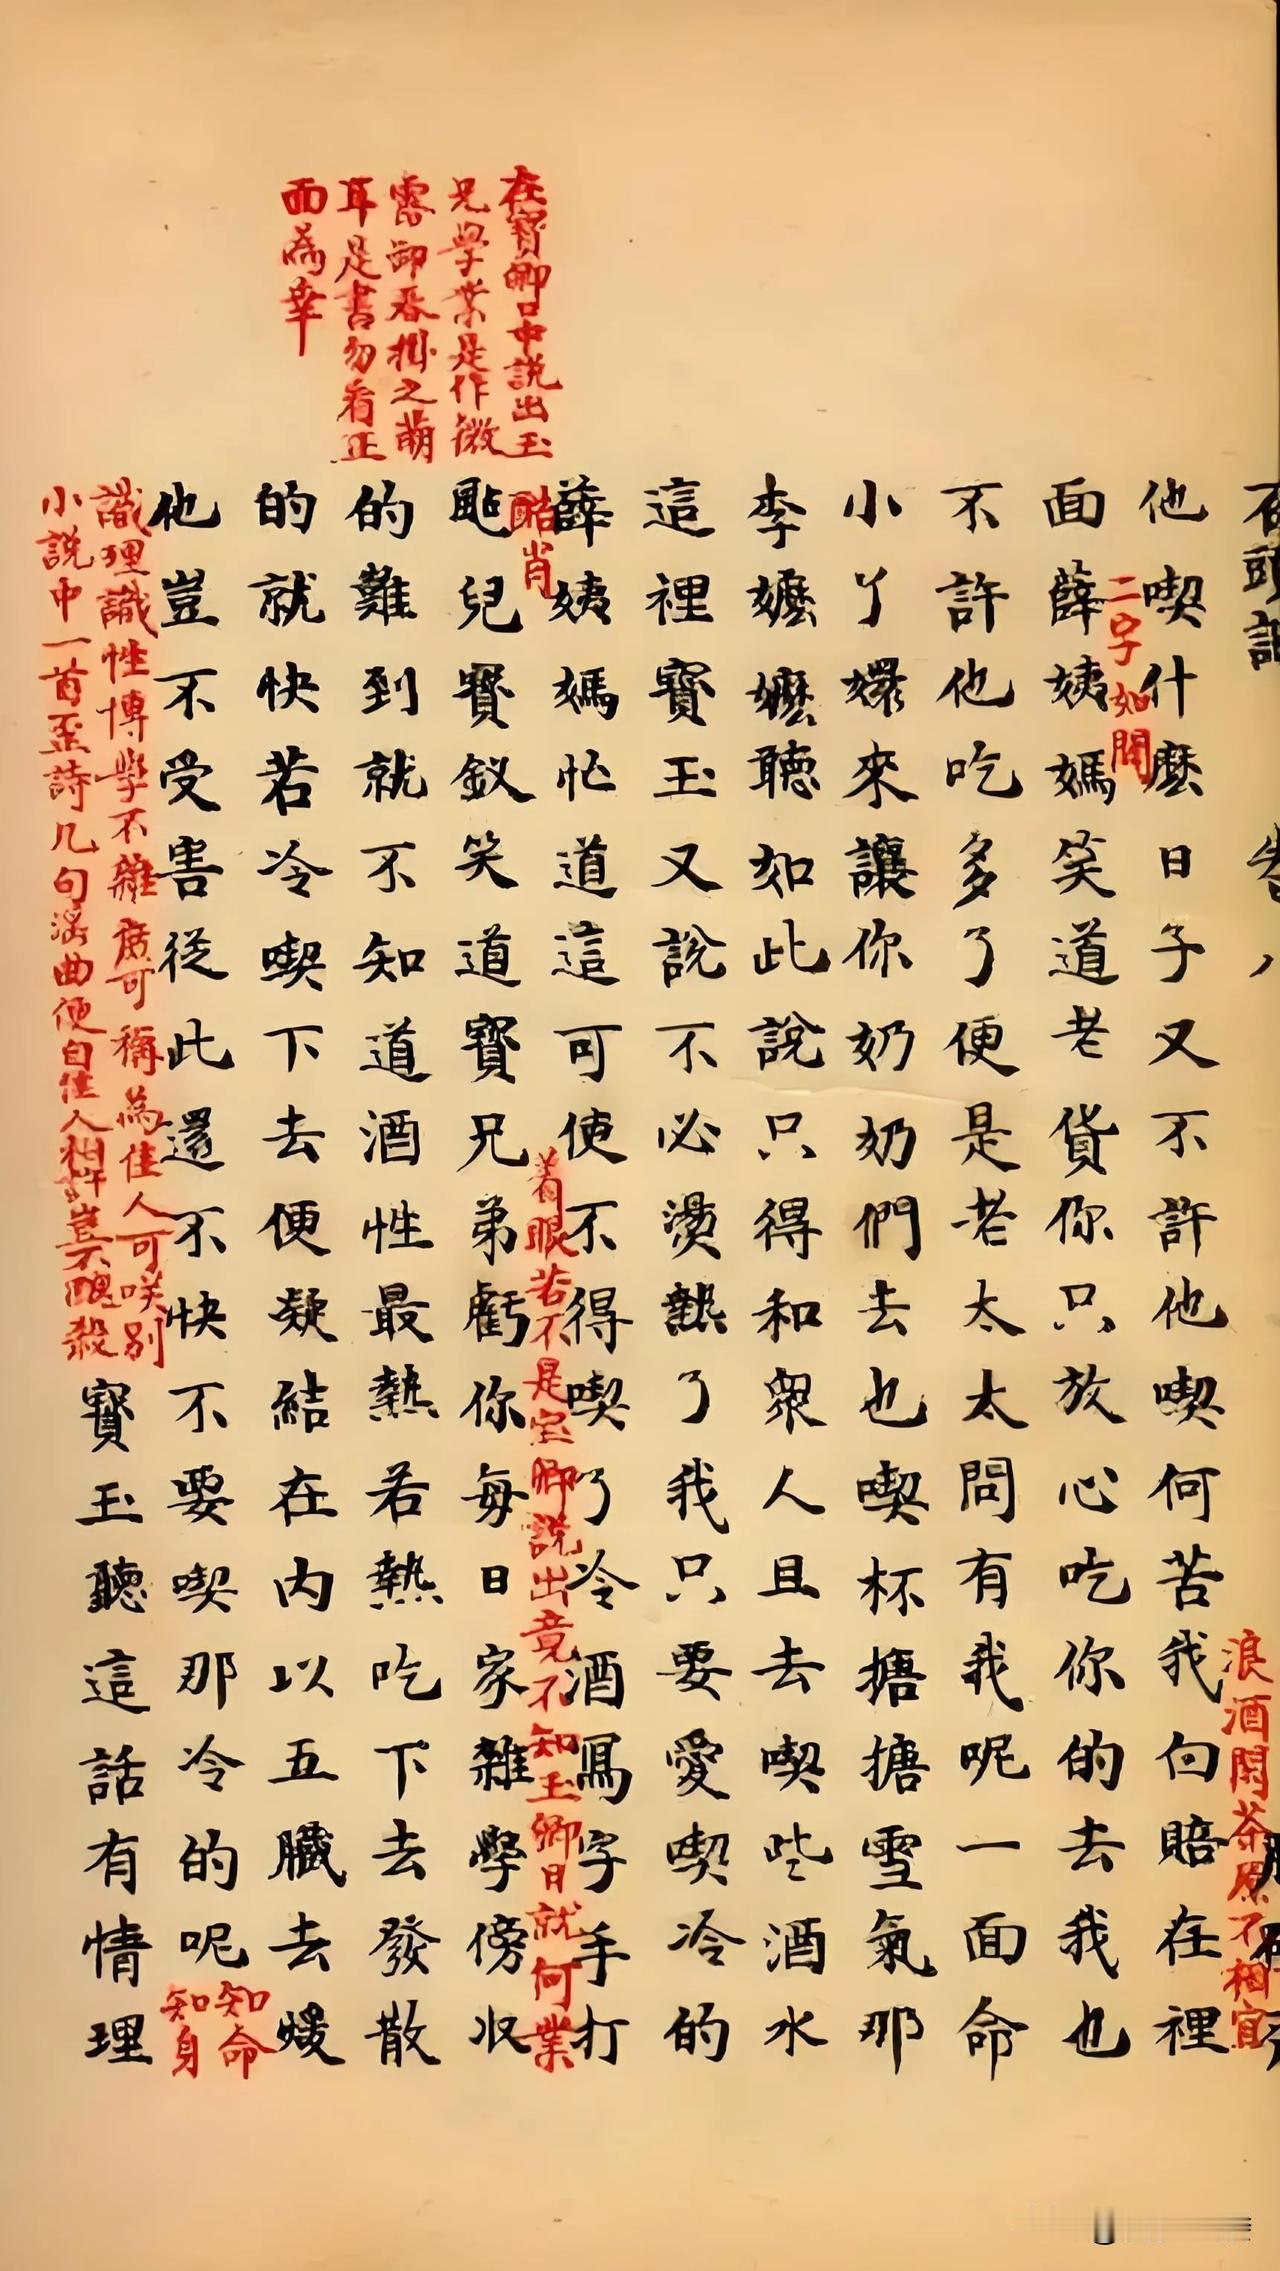 石頭記
他喫什麽日子又不許他喫何苦我白賠在裡
浪酒閑茶原不相宜
二字如聞
面薛姨媽笑道老貨你只放心吃你的去我也
不許他吃多了便是老太太問有我呢一面命
小丫嬛來讓你奶奶們去也喫杯搪搪雪氣那
李嬷嬷聽如此說只得和衆人且去喫些酒水
這裡寶玉又說不必燙熱了我只要愛喫冷的
薛姨媽忙道這可使不得喫了冷酒寫字手打
酷肖
着眼若不是宝卿説出竟不知玉卿日就何業
在寳卿口中説出玉
兄學業是作微
露卸春掛之萌
耳是書勿看正
面為幸
颭兒寶釵笑道寶兄弟虧你每日家雜學傍收
的難到就不知道酒性最熱若熱吃下去發散
的就快若冷喫下去便凝結在內以五臟去煖
他豈不受害從此還不快不要喫那冷的呢
知命
知身
識理識性博學不雜庶可稱為佳人可咲別
小說中一首歪詩几句淫曲便自佳人相許豈不醜殺
寶玉聽這話有情理